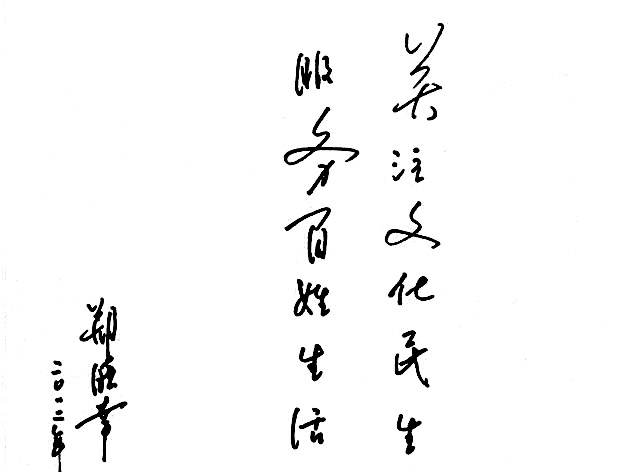 关注文化民生
服务百姓生活
郑晓幸
二〇一二年